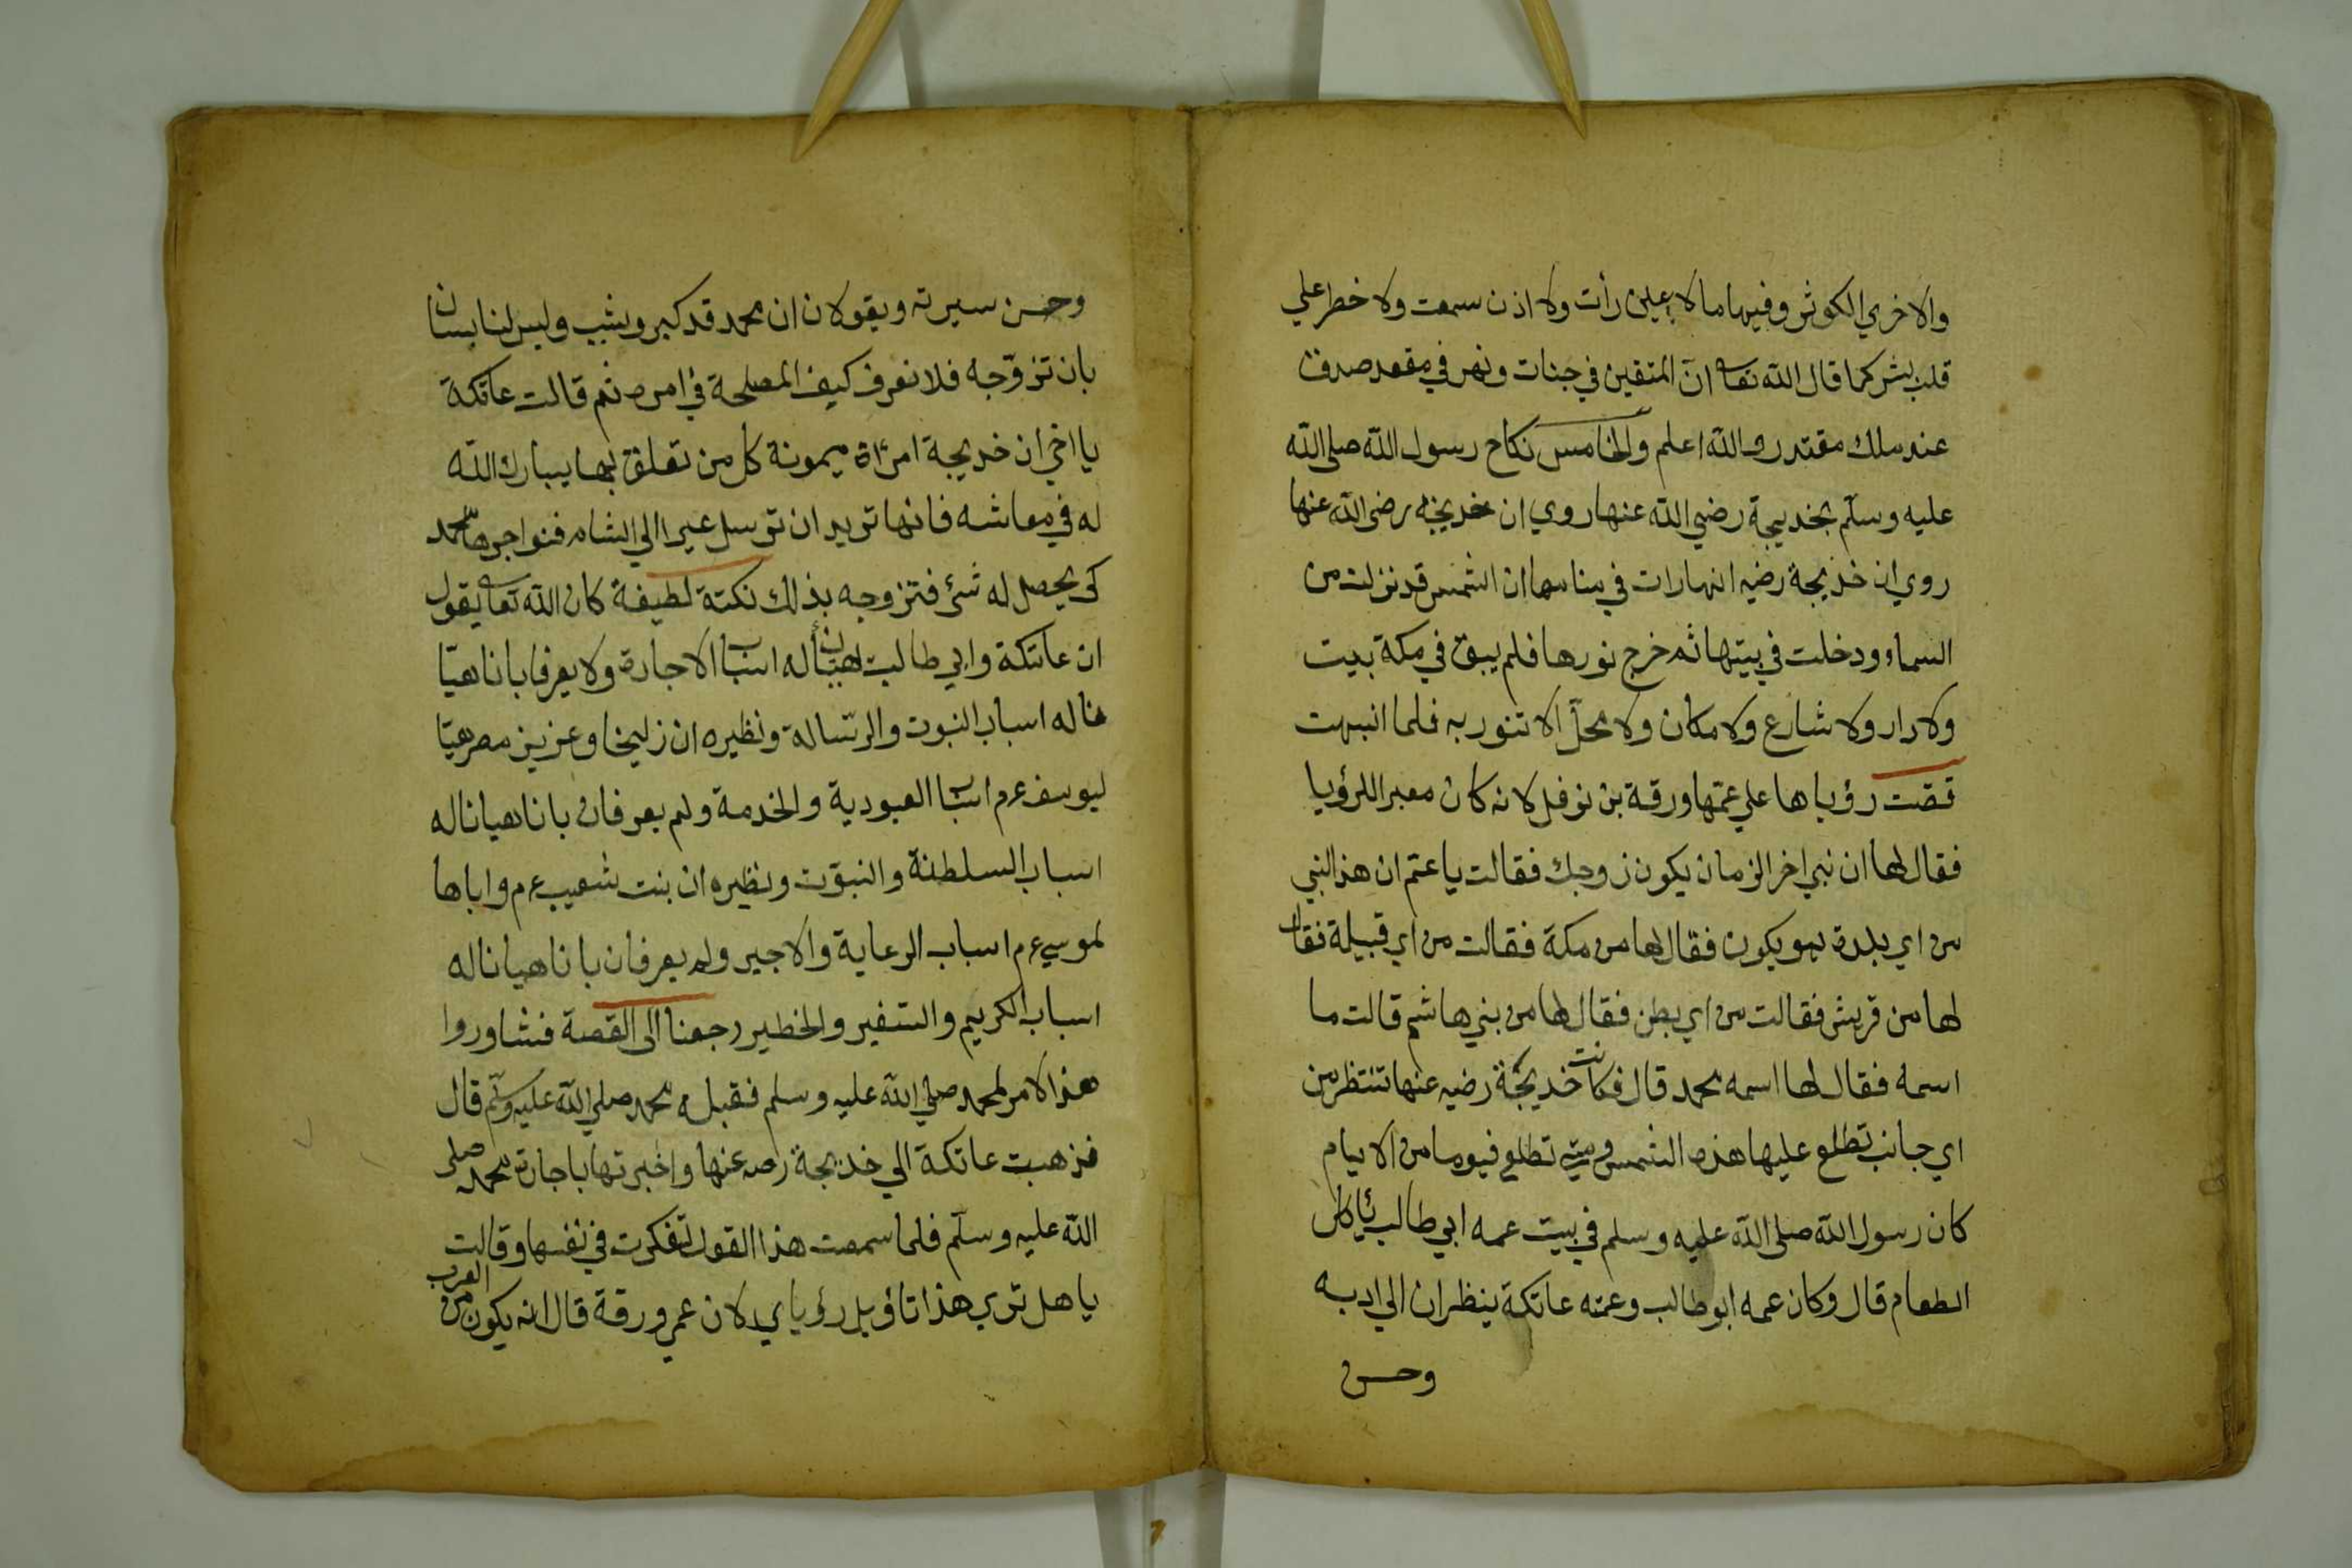 والاخري الكوثر وفيها ما لا عين رأت ولا اذن سمعت ولا خطر علي
قلب بشر كما قال الله تعا ان المتقين في جنات ونهر في مقعد صدق
عند ملك مقتدر والله اعلم والخامس نكاح رسول الله صلى الله
عليه وسلم بخديجة رضي الله عنها روي ان خديجة رضى الله عنها
روي ان خديجة رضيه انها رات في منامها ان الشمس قد نزلت من
السماء ودخلت في بيتها ثم خرج نورها فلم يبق في مكة بيت
ولا دار ولا شارع ولا مكان ولا محل الا تنور به فلما انبهت
قصت رؤياها علي عمها ورقة بن نوفل لانه كان معبر اللرؤيا
فقال لها ان نبي اخر الزمان يكون زوجك فقالت يا عم ان هذ النبي
من اي بلدة هو يكون فقال لها من مكة فقالت من اي قبيلة فقال
لها من قريش فقالت من اي بطن فقال لها من بني هاشم قالت ما
اسمه فقال لها اسمه محمد قال فكانت خديجة رضيه عنها تنتظر من
اي جانب تطلع عليها هذه الشمس تطلع فيوما من الايام
كان رسول الله صلى الله عليه وسلم في بيت عمه ابي طالب يأكل
الطعام قال وكان عمه ابو طالب وعمته عاتكة ينظران الي ادبه
وحسن
وحسن سيرته ويقولان ان محمد قد كبر ويشيب وليس لنا بسان
بان تزوجه فلا نعرف كيف المصلحة في امره ثم قالت عاتكة
يا اخي ان خديجة امرأة ميمونة كل من تعلق بها يبارك الله
له في معاشه فانها تريد ان توسل عيرا الي الشام فنواجرها محمد
كى يحصل له شئ فتزوجه بذالك نكتة لطيفة كان الله تعا يقول
ان عاتكة وابي طالب له اسباب الاجارة ولا يعرفا بانا هيّا
منا له اسباب النبوت والرسالة ونظيره ان زليخا وعزيز مصر هيّا
ليوسف ءم اسباب العبودية والخدمة ولم يعرفان بانا هيانا له
اسباب السلطنة والنبوت ونظيره ان بنت شعيب ءم واباها
لموسي ءم اسباب الرعاية والاجير ولم يعرفان بانا هيانا له
اسباب الكريم والسفير والخطير رجعنا الى القصة فشاوروا
هذا الامر لمحمد صلي الله عليه وسلم فقبله محمد صلي الله عليه وسلم قال
فزهبت عاتكة الي خديجة رضه عنها واخبرتها باجارة محمد صلى
الله عليه وسلم فلما سمعت هذا القول تفكرت في نفسها وقالت
يا هل تري هذا تاؤيل رؤياي لان عمي ورقة قال انه يكون من العرب